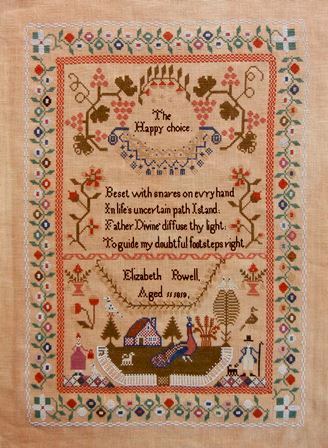 The
Happy choice.
Beset with snares on evry hand
In life's uncertain path I stand:
Father Divine diffuse thy light;
To guide my doubtful footsteps right
Elizabeth Powell,
Aged 11 1819,